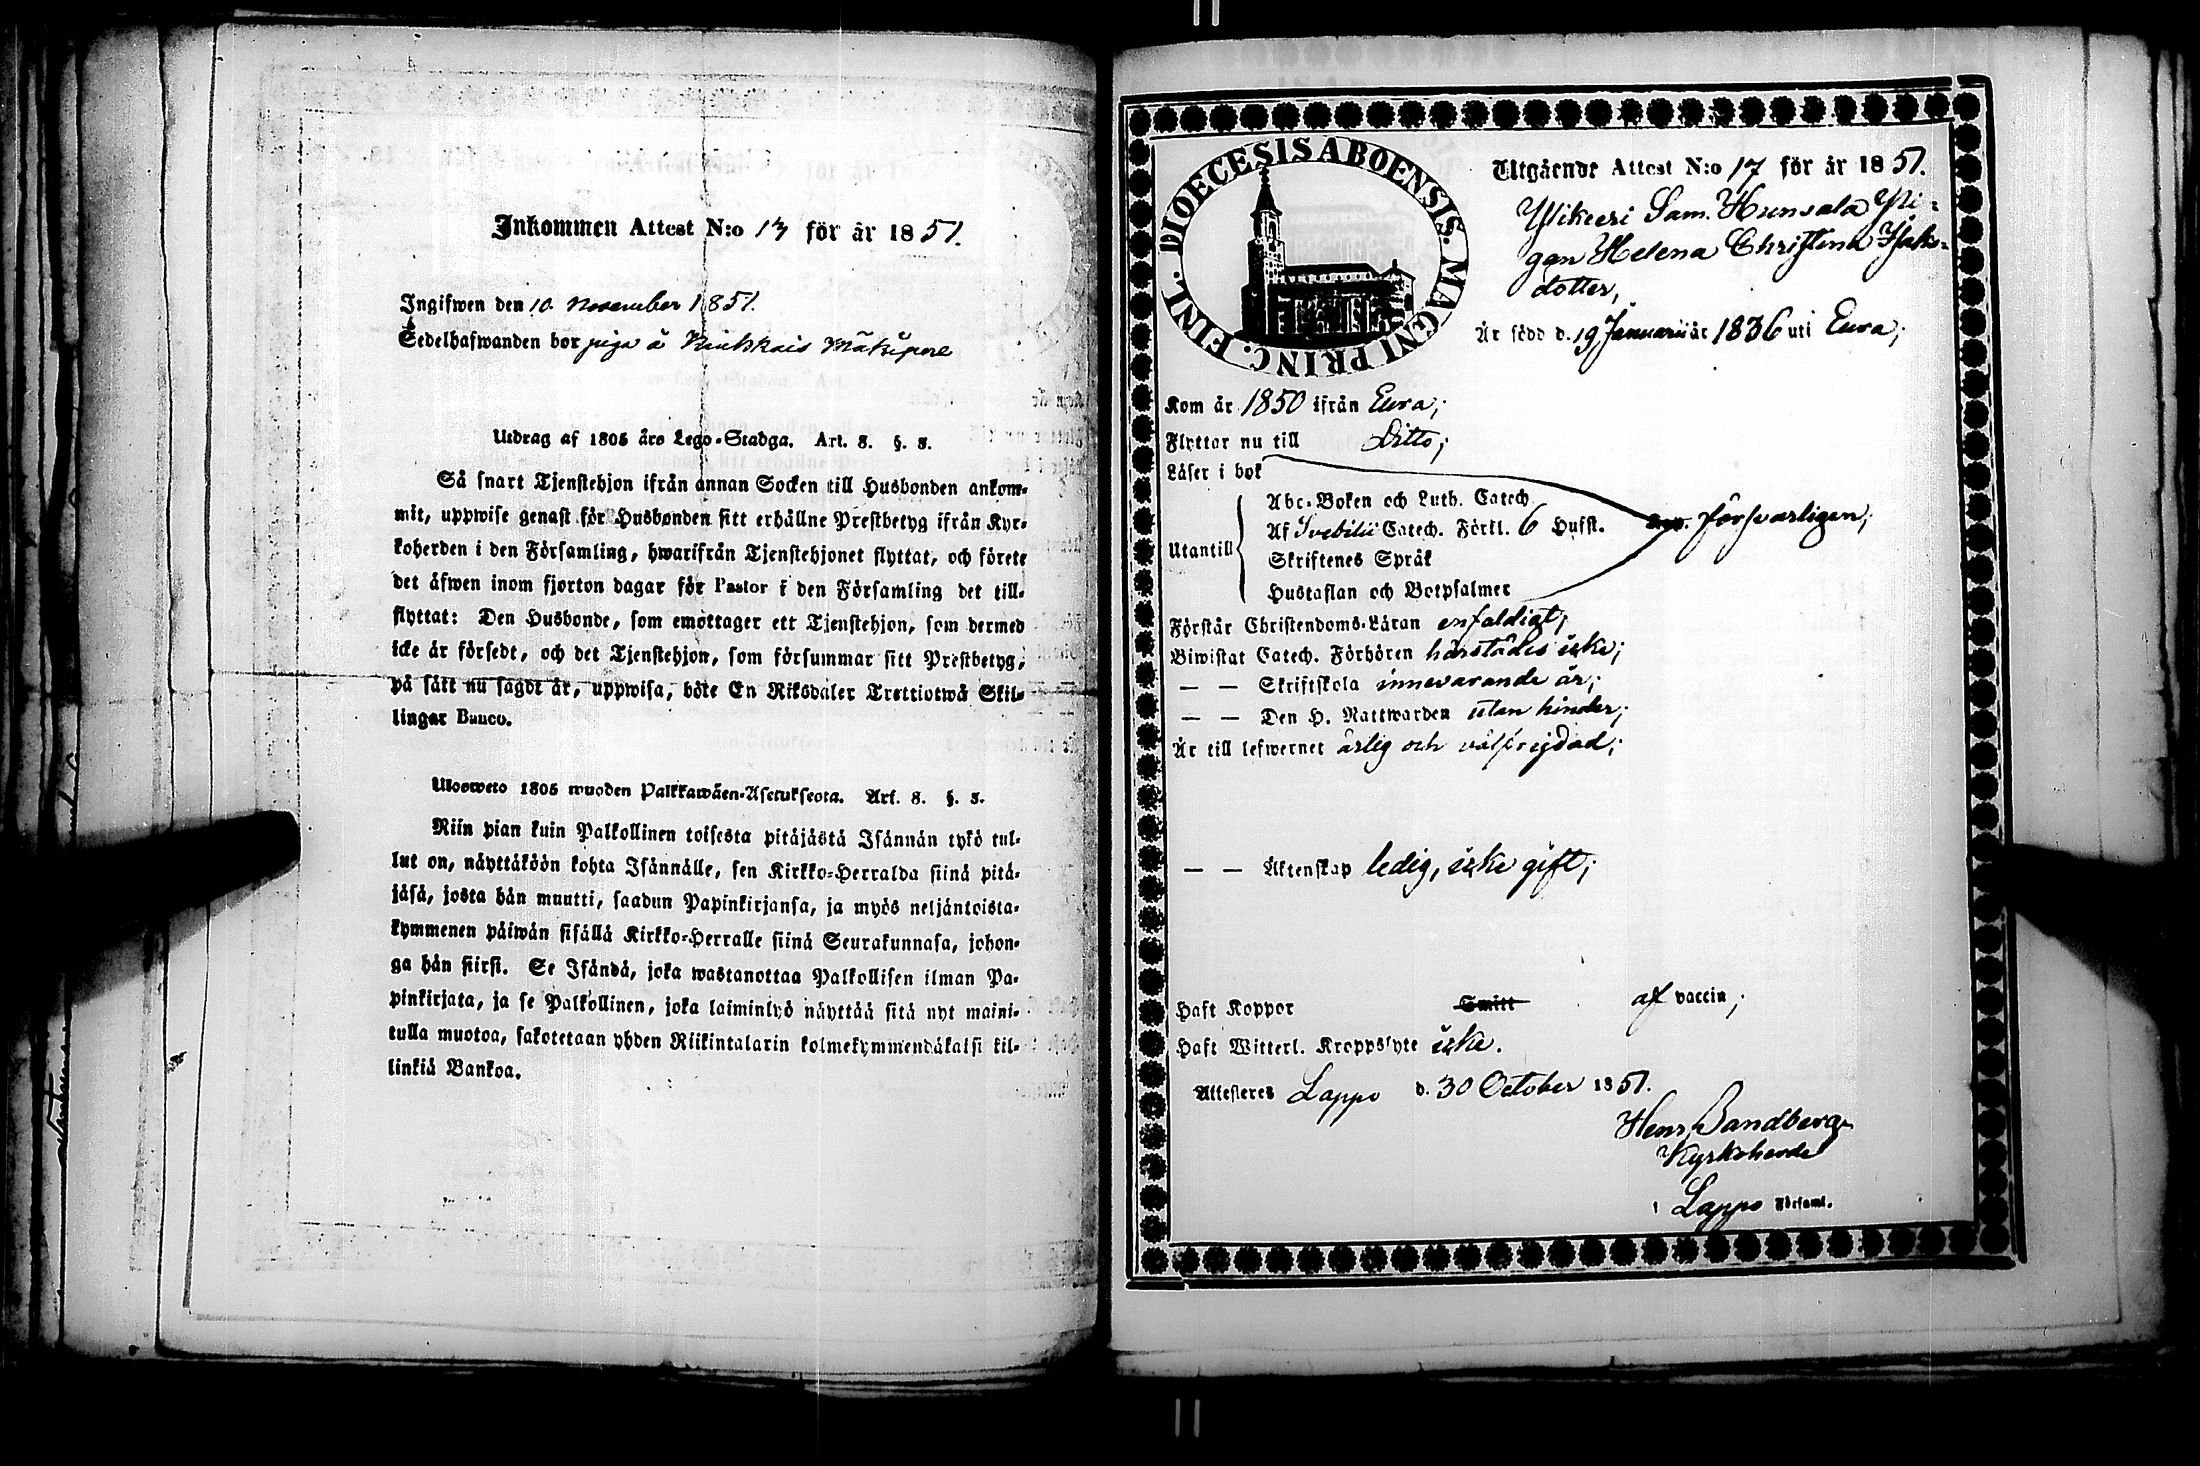 Inkommen Attest N:o 13 för år 1851.
Ingifwen den 10 november 1851.
Sedelhafwanden bor piga å Mäkipere
Utdrag af 1805 års Lego-Stadga. Art. 8. §. 3.
Så snart Tjenstehjon ifrån annan Socken till Husbonden ankom-
mit, uppwise genast för Husbonden sitt erhållne Prestbetyg ifrån Kyr-
koherden i den Församling, hwarifrån Tjenstehjonet flyttat, och förete
det äfwen inom fjorton dagar för Pastor i den Församling det till-
flyttat: Den Husbonde, som emottager ett Tjenstehjon, som dermed
icke är försedt, och det Tjenstehjon, som försummar sitt Prestbetyg,
på sätt nu sagdt är, uppwisa, böte En Riksdaler Trettiotwå Skil-
lingar Banco.
Ulosweto 1805 wuoden Palkkawäen-Asetuksesta. Art. 8. §. 3.
Niin pian kuin Palkollinen toisesta pitäjästä Isännän tykö tul-
lut on, näyttäköön kohta Isännälle, sen Kirkko-Herralda siinä pitä-
jäsä, josta hän muutti, saadun Papinkirjansa, ja myös neljäntoista-
kymmenen päiwän sisällä Kirkko-Herralle siinä Seurakunnasa, johon-
ga hän siirsi. Se Isändä, joka wastanottaa Palkollisen ilman Pa-
pinkirjata, ja se Palkollinen, joka laiminlyö näyttää sitä nyt maini-
tulla muotoa, sakotetaan yhden Riikintalarin kolmekymmendäkaksi kil-
linkiä Bankoa.
DIOECESIS ABOENSIS. MAGNI PRINC. FINL.
Utgående Attest N:o 17 för år 1851.
Sam. Hunsala Pi-
gan Helena Christina Isaks-
dotter,
Är född d. 19 Januarii år 1836 uti Eura;
Kom år 1850 ifrån Eura;
Flyttar nu till Ditto;
Läser i bok
Abc-Boken och Luth. Catech.
Utantill Af Svebilii Catech. Förkl. 6 Hufst. försvarligen;
Skriftenes Språk
Hustaflan och Botpsalmer
Förstår Christendoms-Läran enfaldigt;
Biwistat Catech. Förhören härstädes icke;
— — Skriftskola innevarande år;
— — Den H. Nattwarden utan hinder;
Är till lefwernet ärlig och välfrejdad;
— — Äktenskap ledig, icke gift;
Haft Koppor Smitt af vaccin;
Haft Witterl. Kroppslyte icke.
Attesteres Lappo d. 30 October 1851.
Henr. Sandberg
Kyrkoherde
i Lappo Församl.